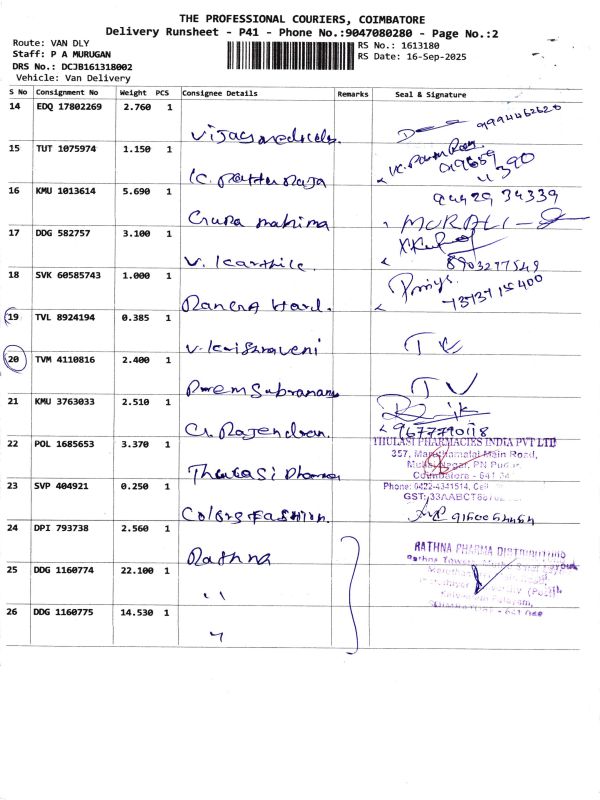 THE PROFESSIONAL COURIERS, COIMBATORE
Delivery Runsheet - P41 - Phone No.:9047080280 - Page No.:2
Route: VAN DLY
Staff: P A MURUGAN
DRS No.: DCJB161318002
Vehicle: Van Delivery
RS No.: 1613180
RS Date: 16-Sep-2025
S No Consignment No Weight PCS Consignee Details Remarks Seal & Signature
14 EDQ 17802269 2.760 1
vijay medicals.
15 TUT 1075974 1.150 1
K. Pattu Raja
16 KMU 1013614 5.690 1
Guna mahima
MURALI
17 DDG 582757 3.100 1
V. Karthik.
8903277549
18 SVK 60585743 1.000 1
Priya.
19 TVL 8924194 0.385 1
V. Krishnaveni
20 TVM 4110816 2.400 1
Prem Subramany
TV
21 KMU 3763033 2.510 1
G. Rajendran.
9677790118
22 POL 1685653 3.370 1
Thulasi Pharma
THULASI PHARMACIES INDIA PVT LTD
357, Maruthamalai Main Road,
Mullai Nagar, PN Pudur,
Coimbatore - 641
Phone: 0422-4341514, Cell
GST: 33AABCT
23 SVP 404921 0.250 1
Colors Fashion.
24 DPI 793738 2.560 1
Rathna
RATHNA PHARMA DISTRIBUTORS
Rathna Towers
25 DDG 1160774 22.100 1
"
26 DDG 1160775 14.530 1
"